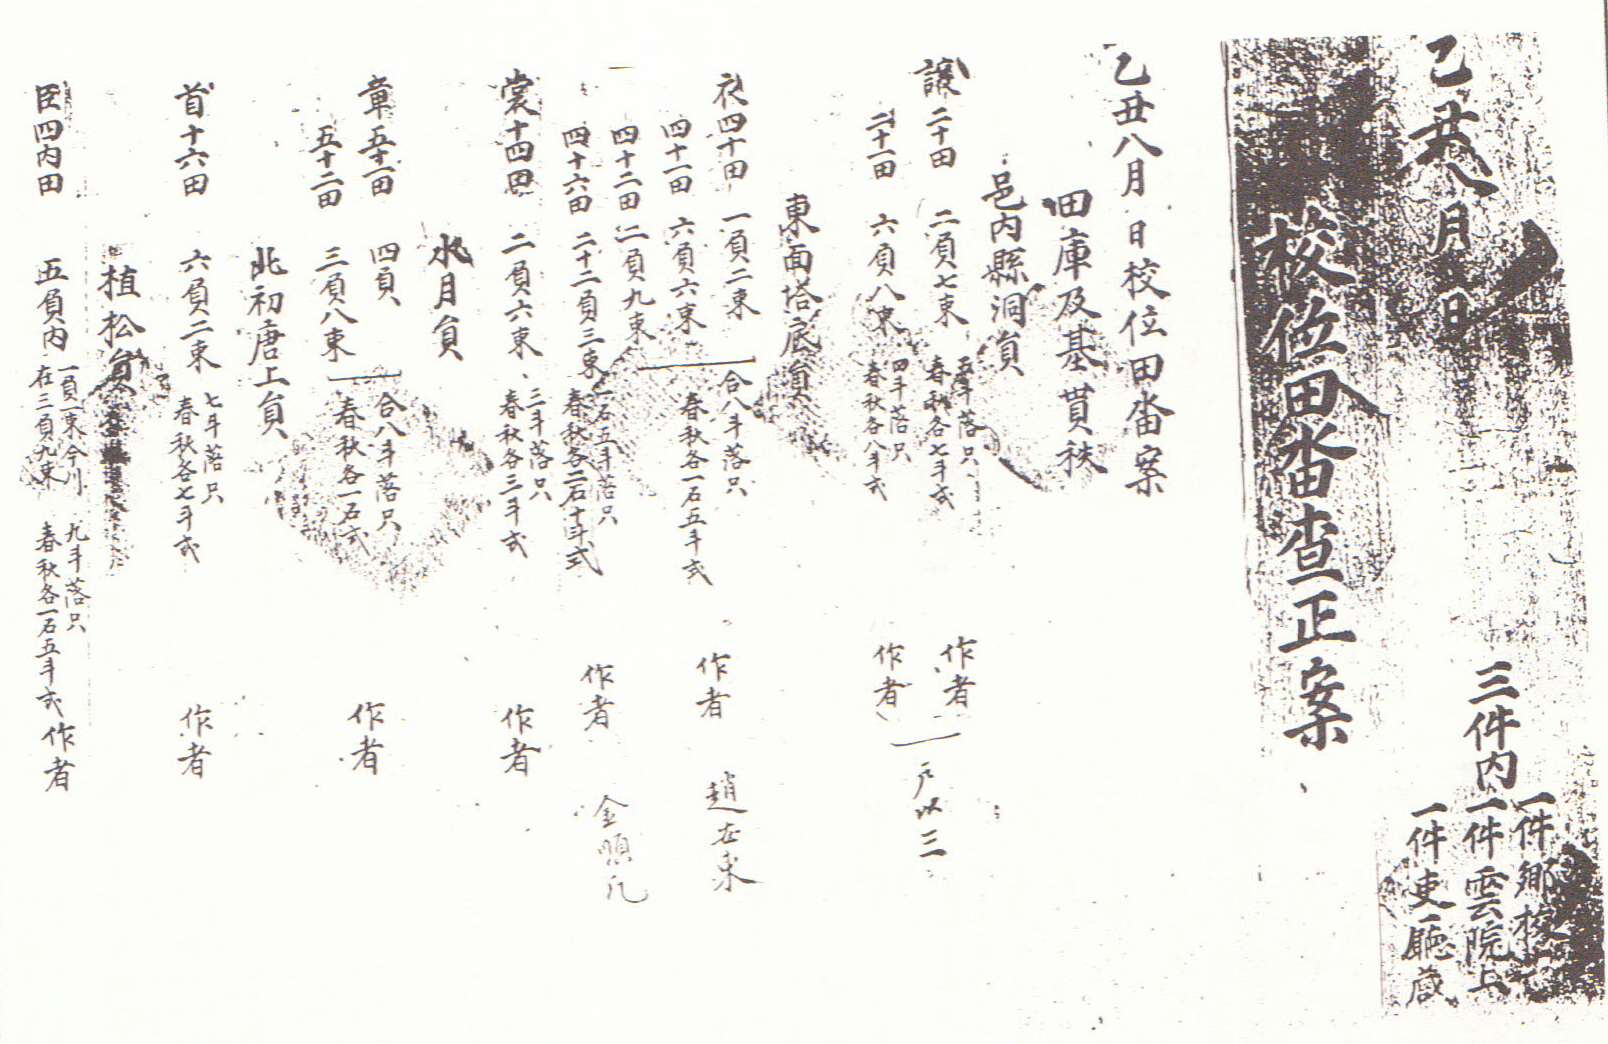 乙丑八月 日
三件內
一件鄕校
一件雲院上
一件吏廳藏
校位田畓查正案
乙丑八月 日校位田畓案
田庫及基貰秩
邑內縣洞員
讓二十田 二負七束 五斗落只 春秋各七斗式 作者
二十一田 六負八束 四斗落只 春秋各八斗式 作者
戶以三
東面塔底員
衣四十田 一負二束
四十一田 六負六束 合八斗落只 春秋各一石五斗式 作者 趙
四十二田 二負九束
四十六田 二十二負三束 一石五斗落只 春秋各二石十斗式 作者 金順凡
裳十四田 二負六束 三斗落只 春秋各三斗式 作者
水月員
章五十一田 四負
五十二田 三負八束 合八斗落只 春秋各一石式 作者
北初唐上員
首十六田 六負二束 七斗落只 春秋各七斗式 作者
植松員
臣四內田 五負內 一負一束今川 在三負九束 九斗落只 春秋各一石五斗式 作者